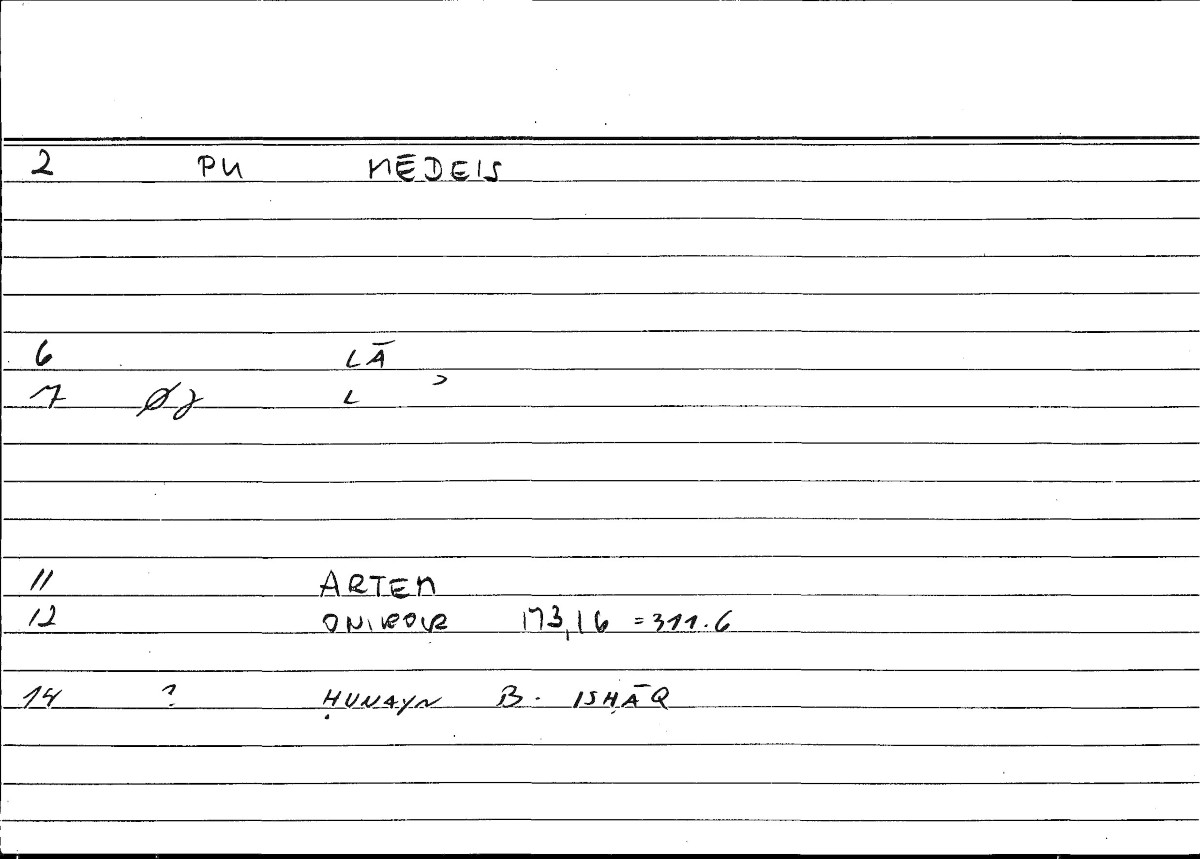 2 PN MĒDEIS
6 LĀ
7 L
11 ARTEM
12 ONIROCR 173,16 = 311.6
14 ? ḤUNAYN B. ISḤĀQ